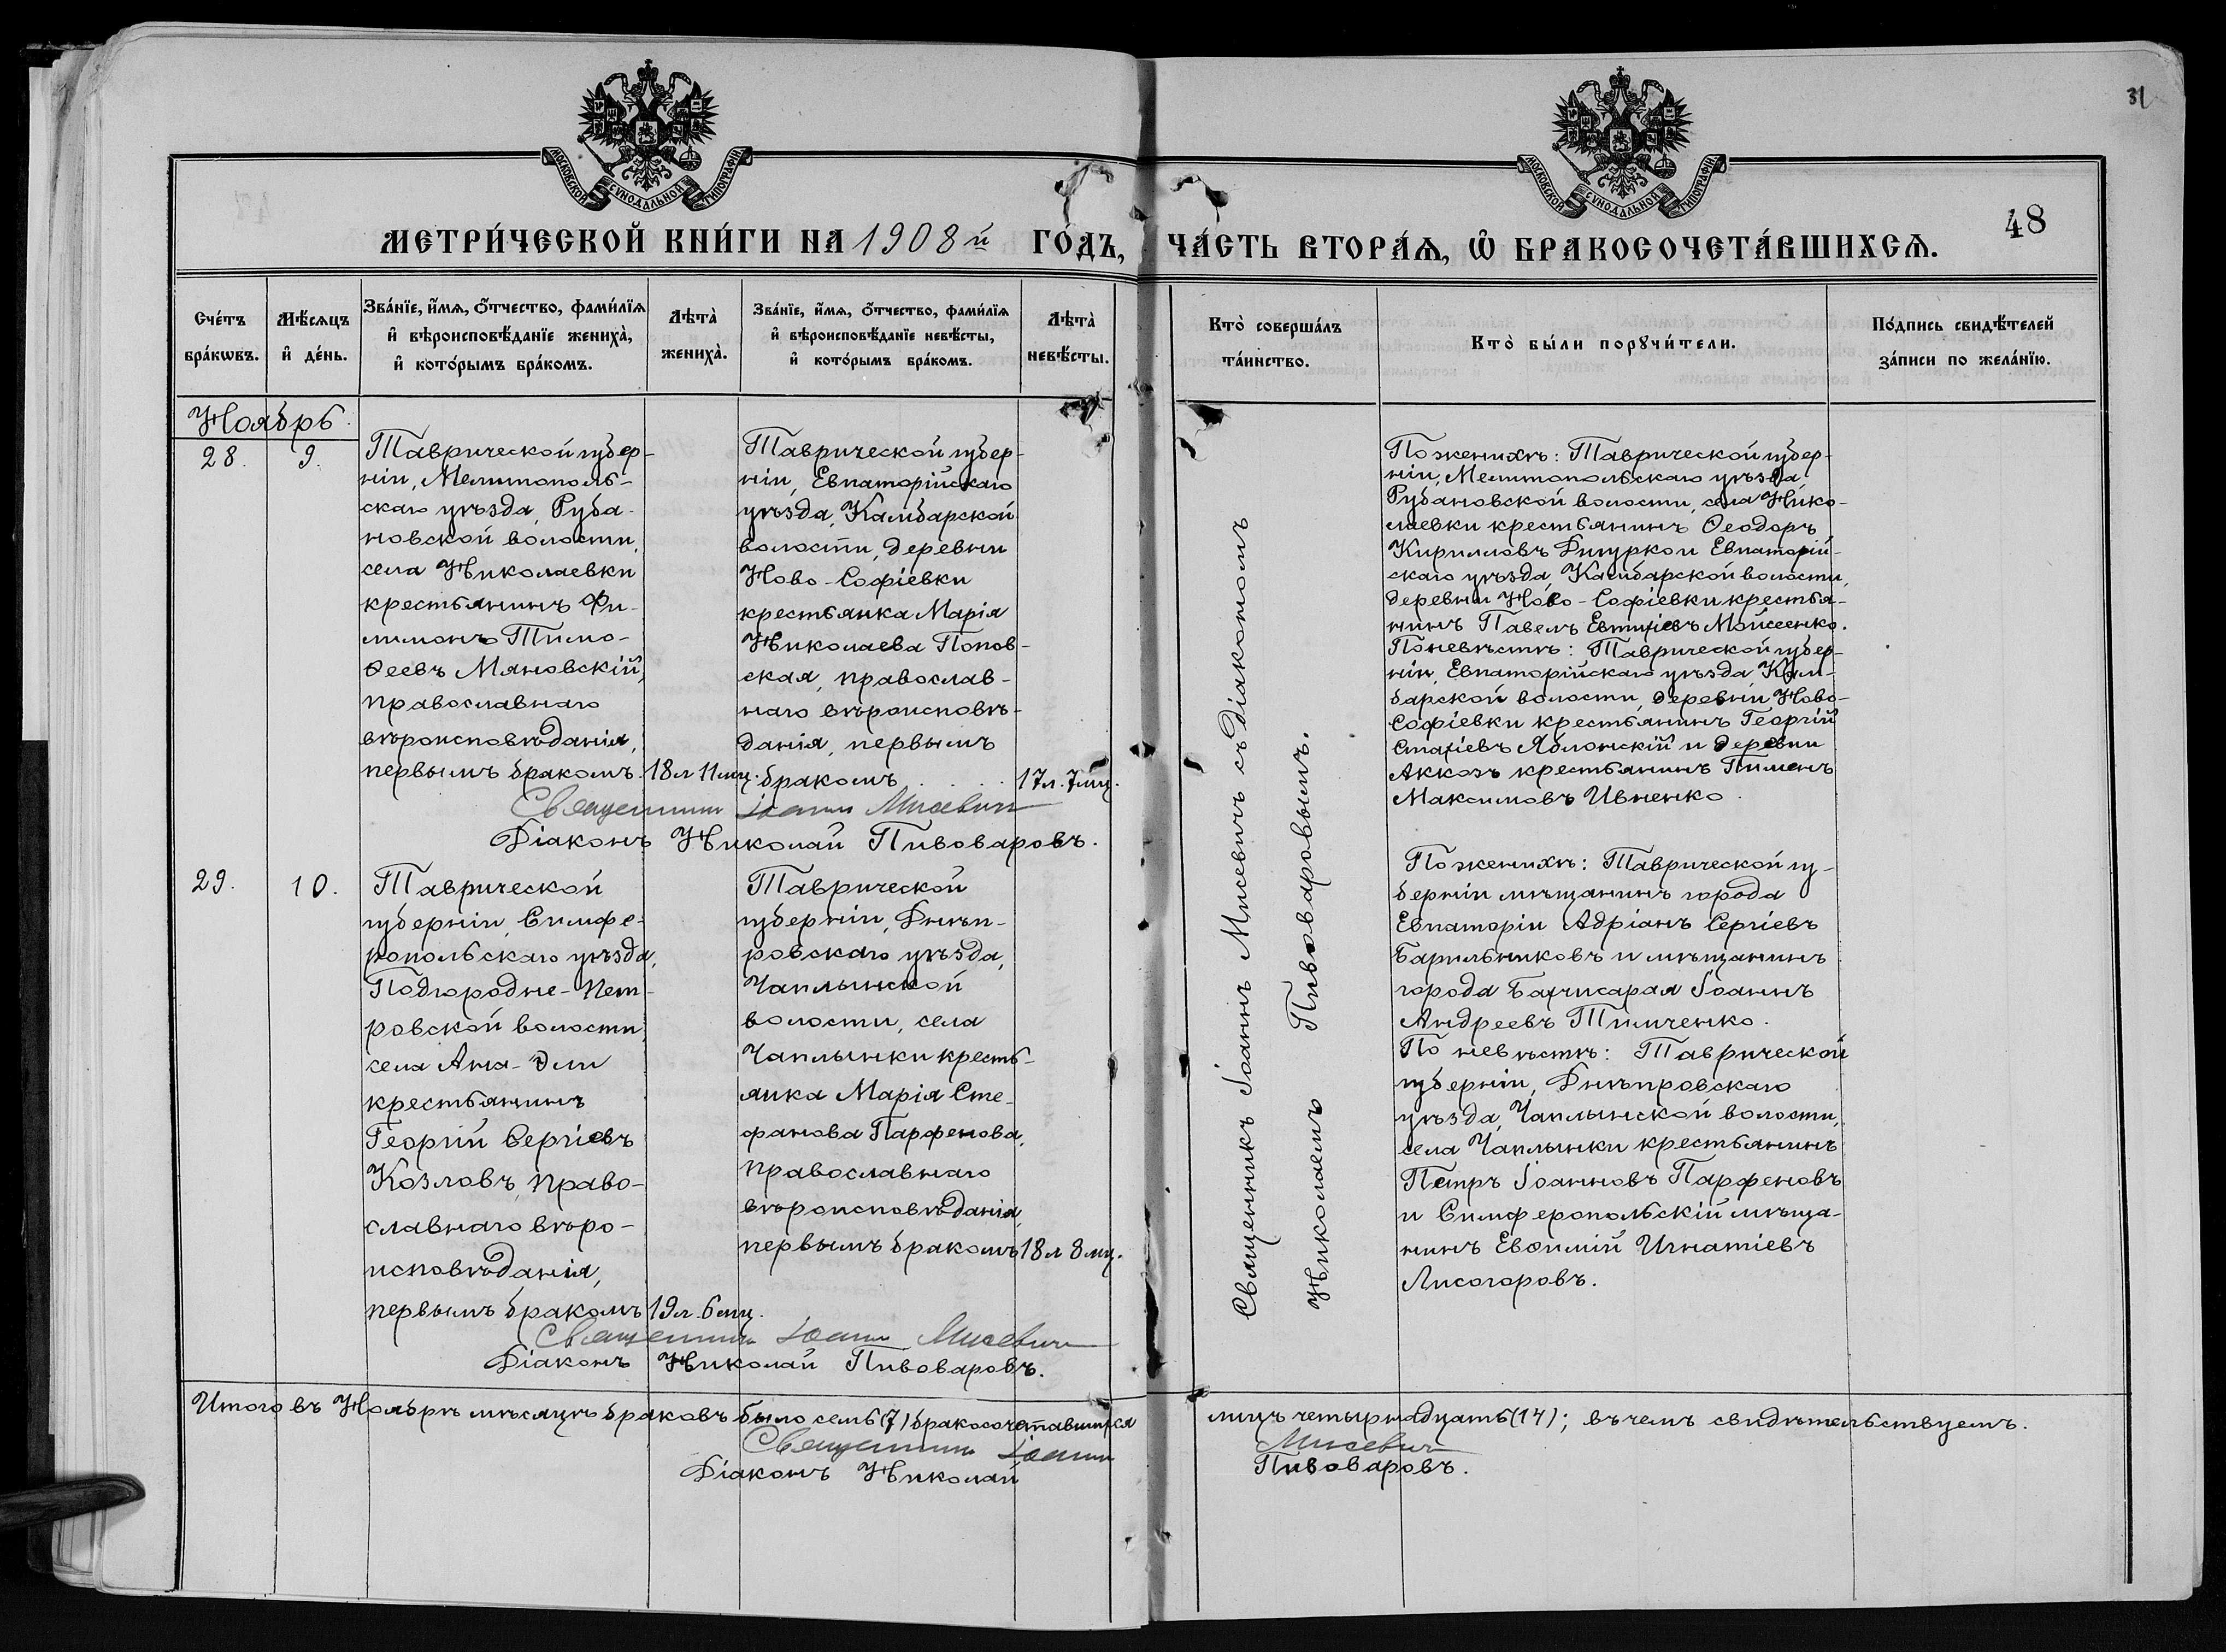 31
48
МОСКОВСКОЙ СѴНОДАЛЬНОЙ ТИПОГРАФІИ
МОСКОВСКОЙ СѴНОДАЛЬНОЙ ТИПОГРАФІИ
МЕТРИ́ЧЕСКОЙ КНИ́ГИ НА 1908й ГО́ДЪ, ЧА́СТЬ ВТОРА́Ѧ, Ѽ БРАКОСОЧЕТА́ВШИХСѦ.
Сче́тъ
бра́кѡвъ.
Мѣ́сѧцъ
и҆ де́нь.
Зва́нїе, и҆́мѧ, ѻ҆́тчество, фами́лїѧ
и҆ вѣроисповѣ́данїе жениха̀,
и҆ кото́рымъ бра́комъ.
Лѣта̀
жениха̀.
Зва́нїе, и҆́мѧ, ѻ҆́тчество, фами́лїѧ
и҆ вѣроисповѣ́данїе невѣ́сты,
и҆ кото́рымъ бра́комъ.
Лѣта̀
невѣ́сты.
Кто̀ соверша́лъ
та́инство.
Кто̀ бы́ли порꙋчи́тели.
По́дпись свидѣ́телей
за́писи по жела́нїю.
Ноябрь
28.
9.
Таврической губер-
ніи, Мелитополь-
скаго уѣзда, Руба-
новской волости,
села Николаевки
крестьянинъ Фи-
лимонъ Тимо-
ѳеевъ Мяновскій,
православнаго
вѣроисповѣданія,
первымъ бракомъ.
18л 11мц.
Таврической губер-
ніи, Евпаторійскаго
уѣзда, Камбарской
волости, деревни
Ново-Софіевки
крестьянка Марія
Николаева Попов-
ская, православ-
наго вѣроисповѣ-
данія, первымъ
бракомъ . . .
17л. 7мц.
Священникъ Іоаннъ Мисевичъ
Діаконъ Николай Пивоваровъ.
Священникъ Іоаннъ Мисевичъ съ діакономъ
Николаемъ Пивоваровымъ.
По женихѣ: Таврической губер-
ніи, Мелитопольскаго уѣзда
Рубановской волости, села Нико-
лаевки крестьянинъ Ѳеодоръ
Кирилловъ Дигурко и Евпаторій-
скаго уѣзда, Камбарской волости,
деревни Ново-Софіевки крестья-
нинъ Павелъ Евтихіевъ Мойсеенко.
По невѣстѣ: Таврической губер-
ніи, Евпаторійскаго уѣзда, Кам-
барской волости, деревни Ново-
Софіевки крестьянинъ Георгій
Стахіевъ Яблонскій и деревни
Аккозъ крестьянинъ Пименъ
Максимовъ Ивненко.
29.
10.
Таврической
губерніи, Симфе-
ропольскаго уѣзда,
Подгородне-Пет-
ровской волости,
села Ана-Эли
крестьянинъ
Георгій Сергіевъ
Козловъ, право-
славнаго вѣро-
исповѣданія,
первымъ бракомъ
19л. 6мц.
Таврической
губерніи, Днѣп-
ровскаго уѣзда,
Чаплынской
волости, села
Чаплынки кресть-
янка Марія Сте-
фанова Парфенова,
православнаго
вѣроисповѣданія,
первымъ бракомъ
18л 8мц.
Священникъ Іоаннъ Мисевичъ
Діаконъ Николай Пивоваровъ.
По женихѣ: Таврической гу-
берніи мѣщанинъ города
Евпаторіи Адріанъ Сергіевъ
Барильниковъ и мѣщанинъ
города Бахчисарая Іоаннъ
Андреевъ Тимченко.
По невѣстѣ: Таврической
губерніи, Днѣпровскаго
уѣзда, Чаплынской волости,
села Чаплынки крестьянинъ
Петръ Іоанновъ Парфеновъ
и Симферопольскій мѣща-
нинъ Евѳимій Игнатіевъ
Лисогоровъ.
Итого въ Ноябрѣ мѣсяцѣ браковъ было семь (7) бракосочетавшихся лицъ четырнадцать (14); въ чемъ свидѣтельствуемъ.
Священникъ Іоаннъ Мисевичъ
Діаконъ Николай Пивоваровъ.